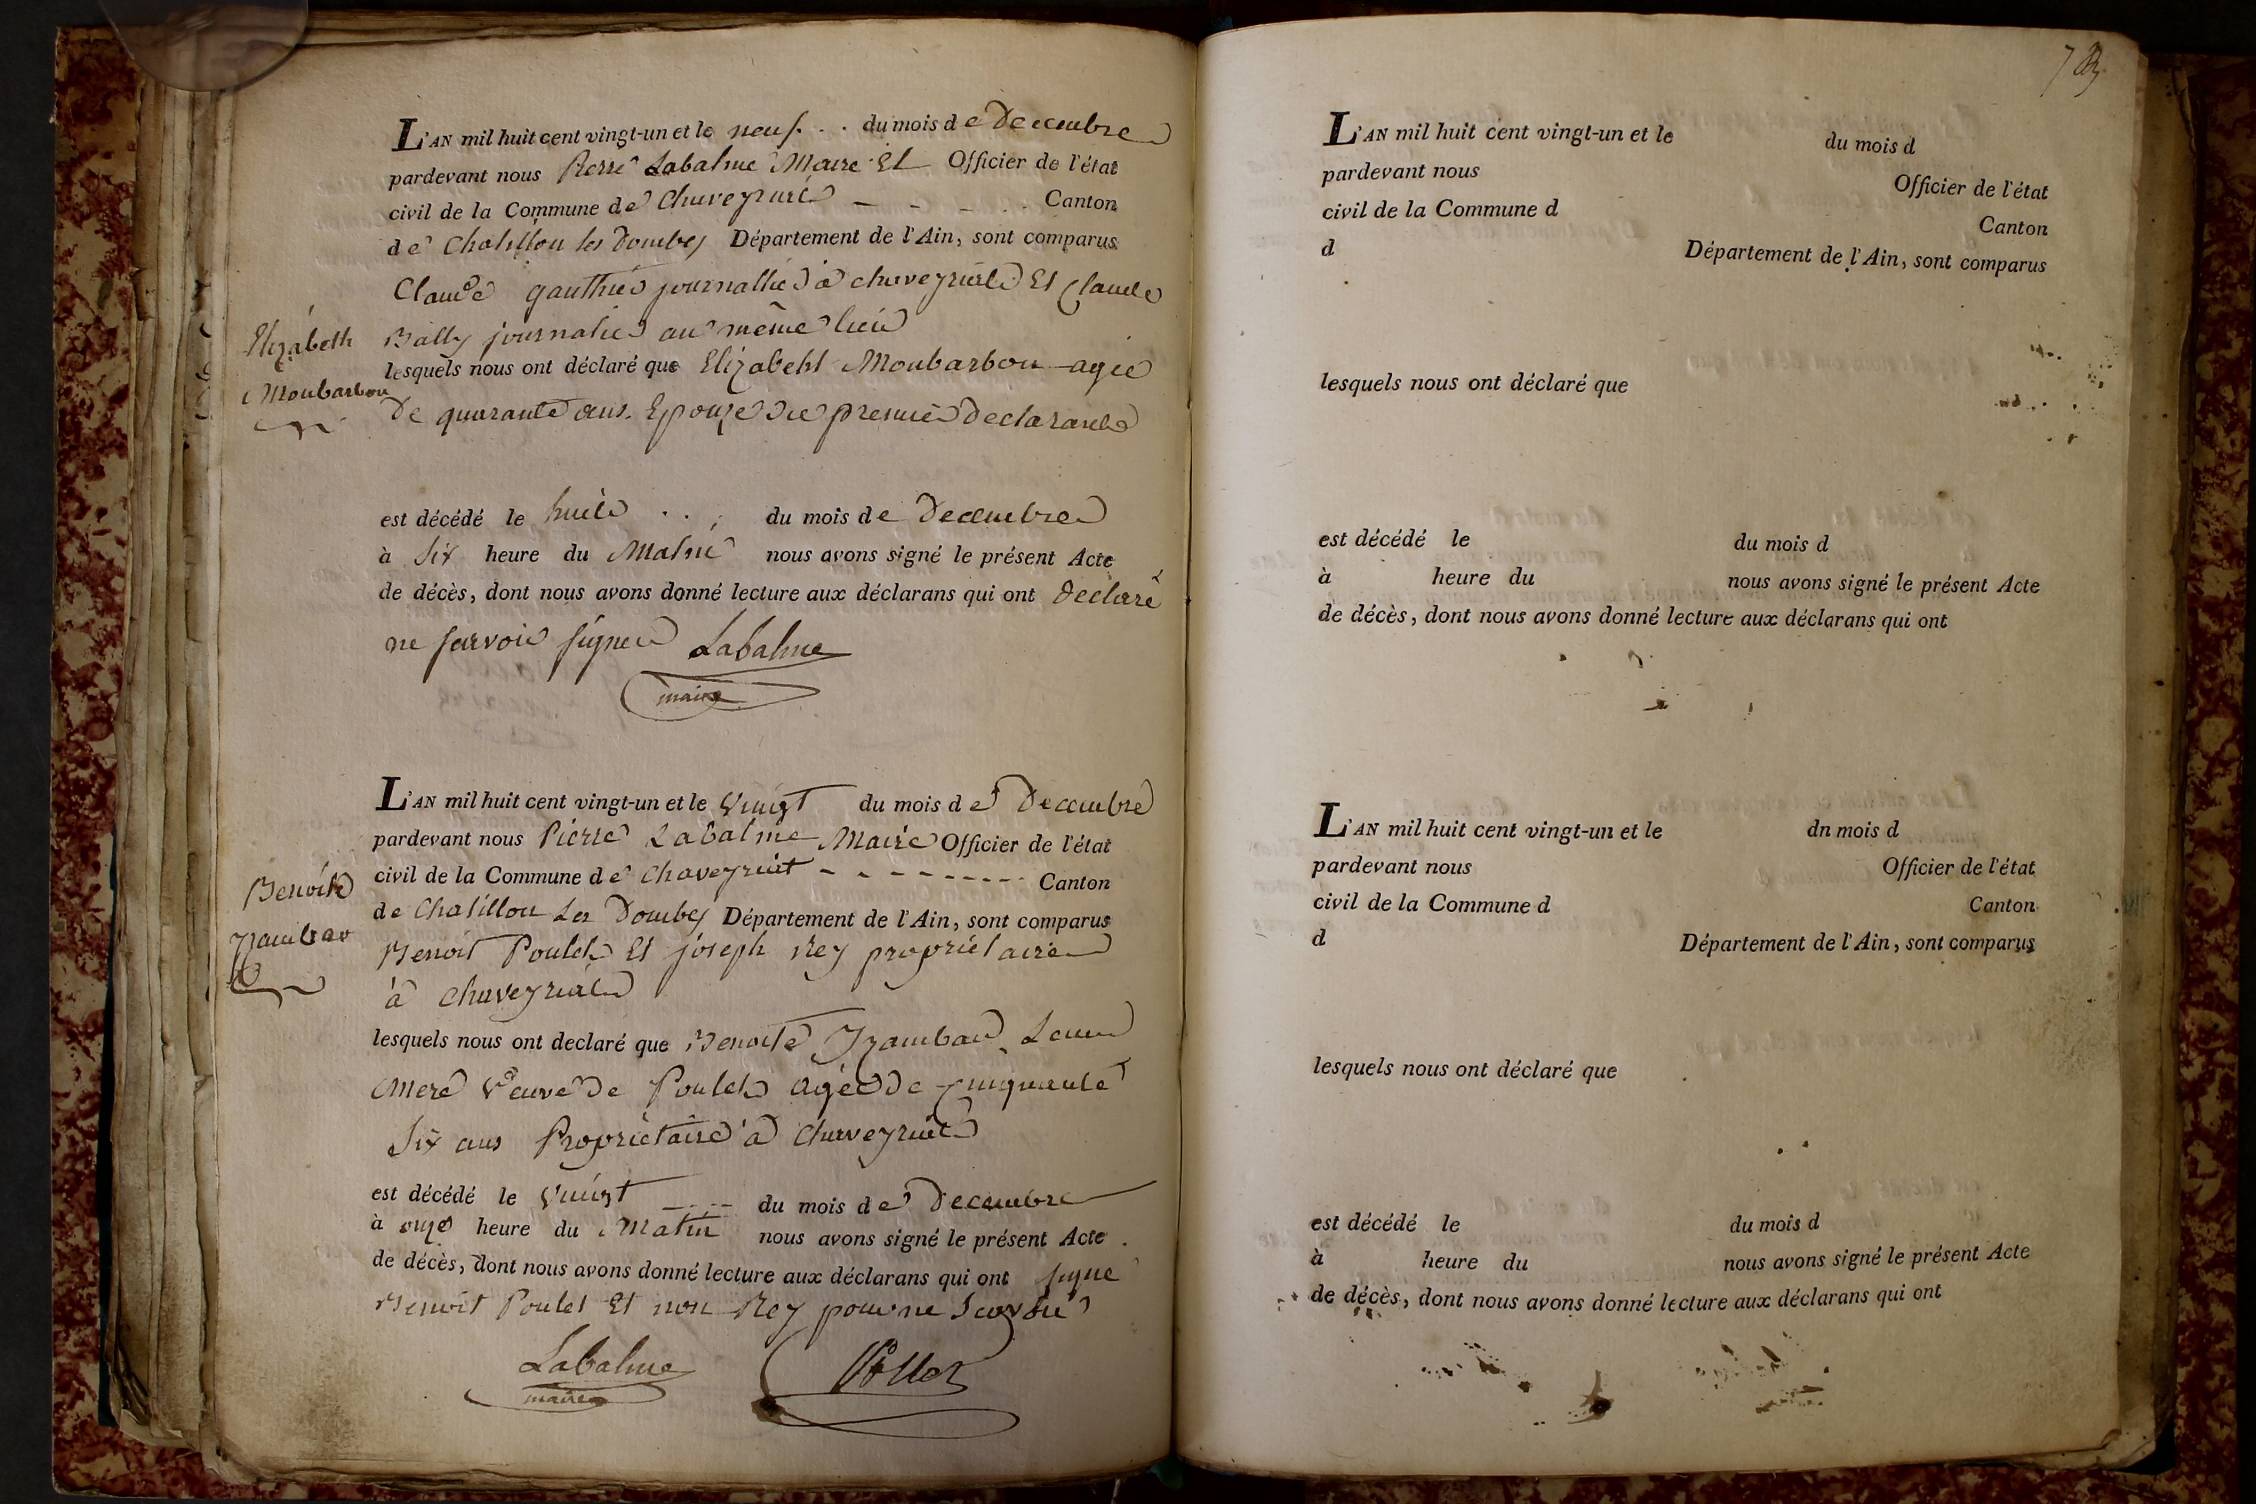 L'AN mil huit cent vingt-un et le neuf . . du mois de Decembre
pardevant nous Pierre Labalme Maire Et Officier de l'état
civil de la Commune de Chaveyriat - - - . Canton
de Chatillon les Dombes Département de l'Ain, sont comparus
Claude gauthier journallier à chaveyriat Et Claude
Bally journalier au même lieu
Elizabeth
Monbarbon
lesquels nous ont déclaré que Elizabeht Monbarbon agée
De quarante ans. Epouze du premier Declarant
est décédé le huit . . . du mois de Decembre
à Six heure du Matin nous avons signé le présent Acte
de décès, dont nous avons donné lecture aux déclarans qui ont declaré
ne savoir signer Labalme
maire
L'AN mil huit cent vingt-un et le Vingt du mois de Decembre
pardevant nous Pierre Labalme Maire Officier de l'état
civil de la Commune de Chaveyriat - - - - - - - - Canton
de Chatillon Les Dombes Département de l'Ain, sont comparus
Benoite
Benoit Poulet Et joseph Rey propriétaire
à Chaveyriat
lesquels nous ont declaré que Benoite Leur
Mere Veuve De Poulet agée de cinquante
Six ans Propriétaire à Chaveyriat
est décédé le Vingt - - - - du mois de Decembre
à onze heure du Matin nous avons signé le présent Acte .
de décès, dont nous avons donné lecture aux déclarans qui ont signe
Benoit Poulet Et non Rey pour ne
Labalme Pollet
maire
L'AN mil huit cent vingt-un et le du mois d
pardevant nous Officier de l'état
civil de la Commune d Canton
d Département de l'Ain, sont comparus
lesquels nous ont déclaré que
est décédé le du mois d
à heure du nous avons signé le présent Acte
de décès, dont nous avons donné lecture aux déclarans qui ont
L'AN mil huit cent vingt-un et le dn mois d
pardevant nous Officier de l'état
civil de la Commune d Canton
d Département de l'Ain, sont comparus
lesquels nous ont déclaré que
est décédé le du mois d
à heure du nous avons signé le présent Acte
de décès, dont nous avons donné lecture aux déclarans qui ont